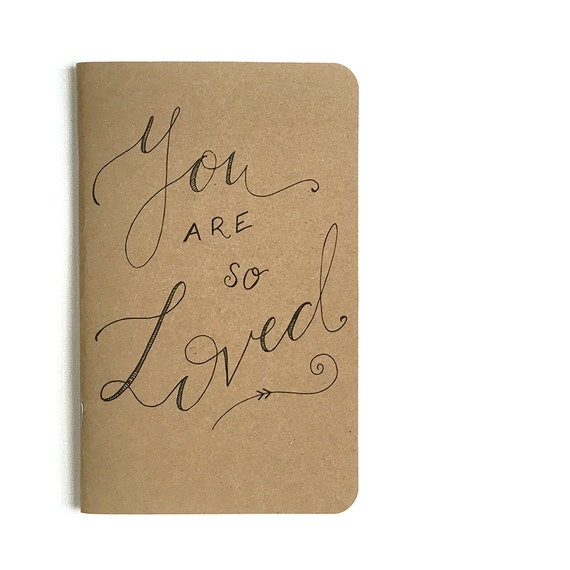 You
ARE
so
Loved